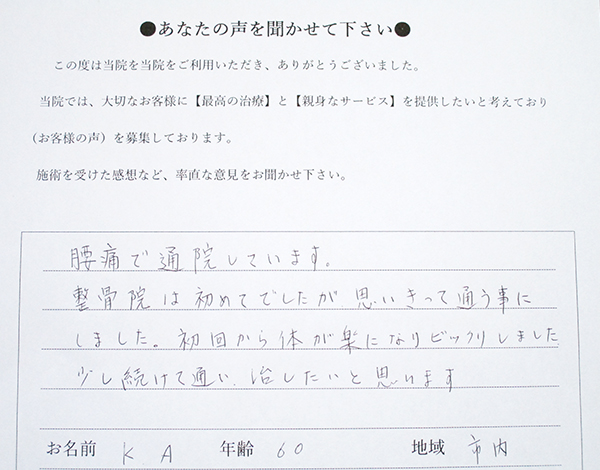 ●あなたの声を聞かせて下さい●
この度は当院を当院をご利用いただき、ありがとうございました。
当院では、大切なお客様に【最高の治療】と【親身なサービス】を提供したいと考えており
(お客様の声）を募集しております。
施術を受けた感想など、率直な意見をお聞かせ下さい。
腰痛で通院しています。
整骨院は初めてでしたが思いきって通う事に
しました。初回から体が楽になりビックリしました
少し続けて通い、治したいと思います
お名前 K A 年齢 60 地域 市内